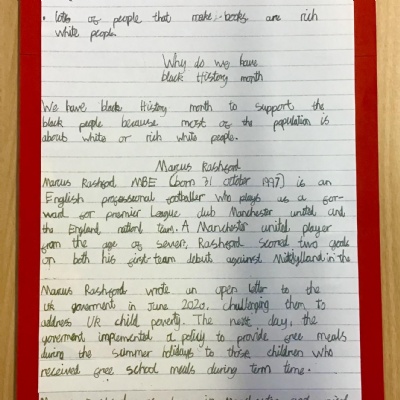 • lots of people that make books are rich
white people
Why do we have
black History month
We have black History month to support the
black people because most of the population is
about white or rich white people.
Marcus Rashford
Marcus Rashford MBE (born 31 october 1997) is an
English professional footballer who plays as a for-
ward for premier League club Manchester united and
the England national team. A Manchester united player
from the age of seven, Rashford scored two goals
on both his first-team debut against Midtylland in the
Marcus Rashford wrote an open letter to the
UK goverment in June 2020, challenging them to
address UK child poverty. The next day, the
goverment implemented a policy to provide free meals
during the summer holidays to those children who
received free school meals during term time.